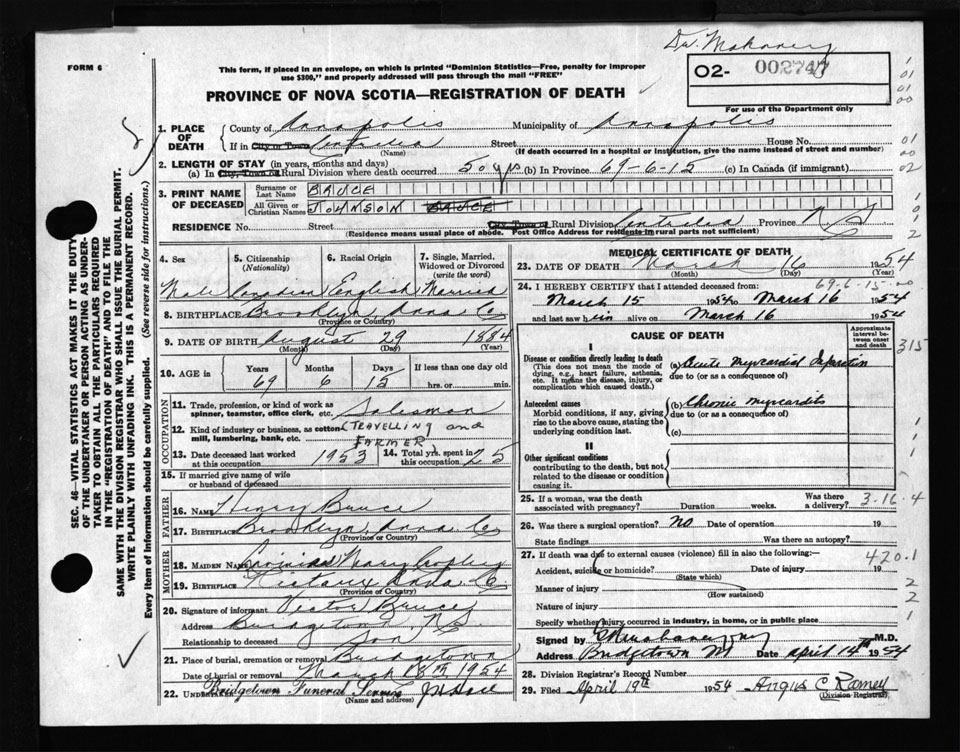 Dr. Mahaney
FORM 6
This form, if placed in an envelope, on which is printed "Dominion Statistics—Free, penalty for improper
use $300," and properly addressed will pass through the mail "FREE"
02- 002747
PROVINCE OF NOVA SCOTIA—REGISTRATION OF DEATH
For use of the Department only
1. PLACE OF DEATH
County of Annapolis Municipality of Annapolis
If in City or Town (Name) Street House No.
(If death occurred in a hospital or institution, give the name instead of street and number)
2. LENGTH OF STAY (in years, months and days)
(a) In City, Town or Rural Division where death occurred 50 yrs (b) In Province 69-6-15 (c) In Canada (if immigrant)
3. PRINT NAME OF DECEASED
Surname or Last Name BRUCE
All Given or Christian Names JOHNSON BRUCE
RESIDENCE No. Street City, Town or Rural Division Centrelea Province N S
(Residence means usual place of abode. Post Office Address for residents in rural parts not sufficient)
4. Sex Male
5. Citizenship (Nationality) Canadian
6. Racial Origin English
7. Single, Married, Widowed or Divorced (write the word) Married
8. BIRTHPLACE Brooklyn Anna Co
(Province or Country)
9. DATE OF BIRTH August 29 1884
(Month) (Day) (Year)
10. AGE in Years 69 Months 6 Days 15 If less than one day old hrs. or min.
OCCUPATION
11. Trade, profession, or kind of work as spinner, teamster, office clerk, etc. Salesman
12. Kind of industry or business, as cotton mill, lumbering, bank, etc. (TRAVELLING and FARMER)
13. Date deceased last worked at this occupation 1953
14. Total yrs. spent in this occupation 25
15. If married give name of wife or husband of deceased
FATHER
16. NAME Henry Bruce
17. BIRTHPLACE Brooklyn Anna Co
(Province or Country)
MOTHER
18. MAIDEN NAME Mary
19. BIRTHPLACE Anna Co
(Province or Country)
20. Signature of informant Victor Bruce
Address Bridgetown N.S.
Relationship to deceased Son
21. Place of burial, cremation or removal Bridgetown
Date of burial or removal March 18th 1954
22. UNDERTAKER Bridgetown Funeral Service
(Name and address)
MEDICAL CERTIFICATE OF DEATH
23. DATE OF DEATH March 16 1954
(Month) (Day) (Year)
69-6-15-00
24. I HEREBY CERTIFY that I attended deceased from:
March 15 1954 to March 16 1954
and last saw him alive on March 16 1954
CAUSE OF DEATH
Approximate interval between onset and death
315
I
Disease or condition directly leading to death
(This does not mean the mode of dying, e.g., heart failure, asthenia, etc. It means the disease, injury, or complication which caused death.)
(a) Acute Myocardial Infarction
due to (or as a consequence of)
Antecedent causes
Morbid conditions, if any, giving rise to the above cause, stating the underlying condition last.
(b) Chronic myocarditis
due to (or as a consequence of)
(c)
II
Other significant conditions
contributing to the death, but not related to the disease or condition causing it.
25. If a woman, was the death associated with pregnancy? Duration weeks. Was there a delivery?
3-16-4
26. Was there surgical operation? No Date of operation 19
State findings Was there an autopsy?
27. If death was due to external causes (violence) fill in also the following:—
420.1
Accident, suicide or homicide? Date of injury 19
(State which)
Manner of injury
(How sustained)
Nature of injury
Specify whether injury occurred in industry, in home, or in public place
Signed by M.D.
Address Bridgetown NS Date April 14th 1954
28. Division Registrar's Record Number
29. Filed April 19th 1954 Angus C Ramey
(Division Registrar)
SEC. 46—VITAL STATISTICS ACT MAKES IT THE DUTY
OF THE UNDERTAKER OR PERSON ACTING AS UNDER-
TAKER TO OBTAIN ALL THE PARTICULARS REQUIRED
IN THE "REGISTRATION OF DEATH" AND TO FILE THE
SAME WITH THE DIVISION REGISTRAR WHO SHALL ISSUE THE BURIAL PERMIT.
WRITE PLAINLY WITH UNFADING INK. THIS IS A PERMANENT RECORD.
Every item of information should be carefully supplied. (See reverse side for instructions.)